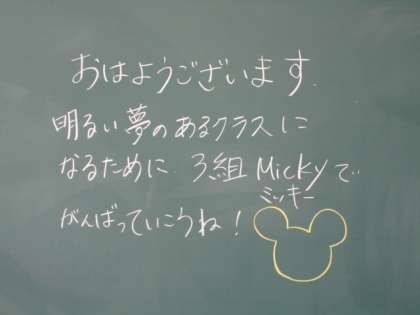 おはようございます.
明るい夢のあるクラスに
なるために 3組 Mickyで
ミッキー
がんばっていこうね!